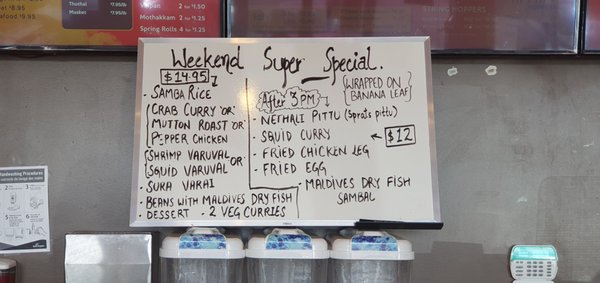 Thuthal 7.95/LB
Masket
Vaipan 2 for $1.50
Mothakkam 2 for $1.25
Spring Rolls 4 for $1.25
STRING HOPPERS
Weekend Super Special.
$14.95
- SAMBA RICE
CRAB CURRY "OR"
MUTTON ROAST "OR"
PEPPER CHICKEN
SHRIMP VARUVAL
OR
SQUID VARUVAL
- SURA VARAI
- BEANS WITH MALDIVES DRY FISH
- DESSERT - 2 VEG CURRIES
After 3PM
WRAPPED ON
BANANA LEAF
- NETHALI PITTU (Sprats pittu)
- SQUID CURRY
- FRIED CHICKEN LEG
- FRIED EGG
- MALDIVES DRY FISH
SAMBAL
$12
Handwashing Procedures